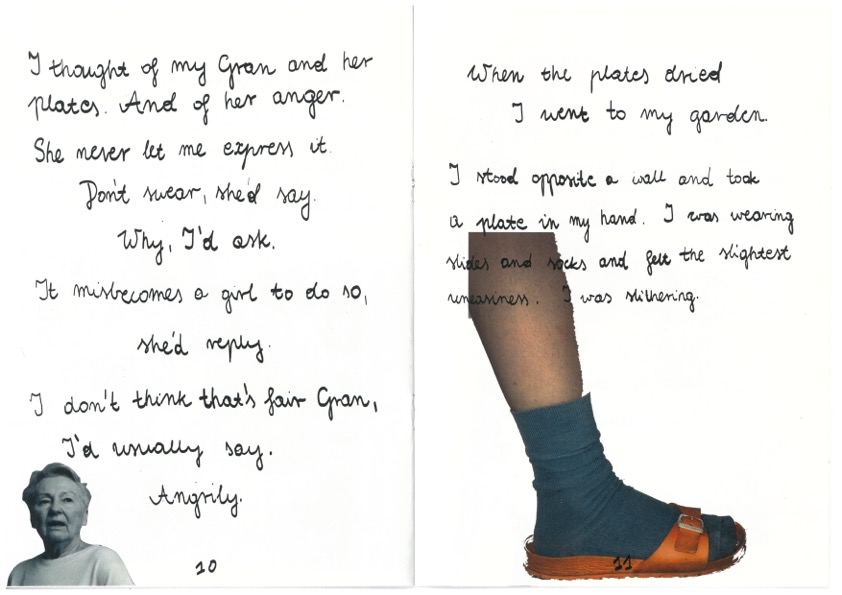 I thought of my Gran and her
plates. And of her anger.
She never let me express it.
Don't swear, she'd say.
Why, I'd ask.
It misbecomes a girl to do so,
she'd reply.
I don't think that's fair Gran,
I'd usually say.
Angrily.
10
When the plates dried
I went to my garden.
I stood opposite a wall and took
a plate in my hand. I was wearing
slides and socks and felt the slightest
uneasiness. I was slithering.
11